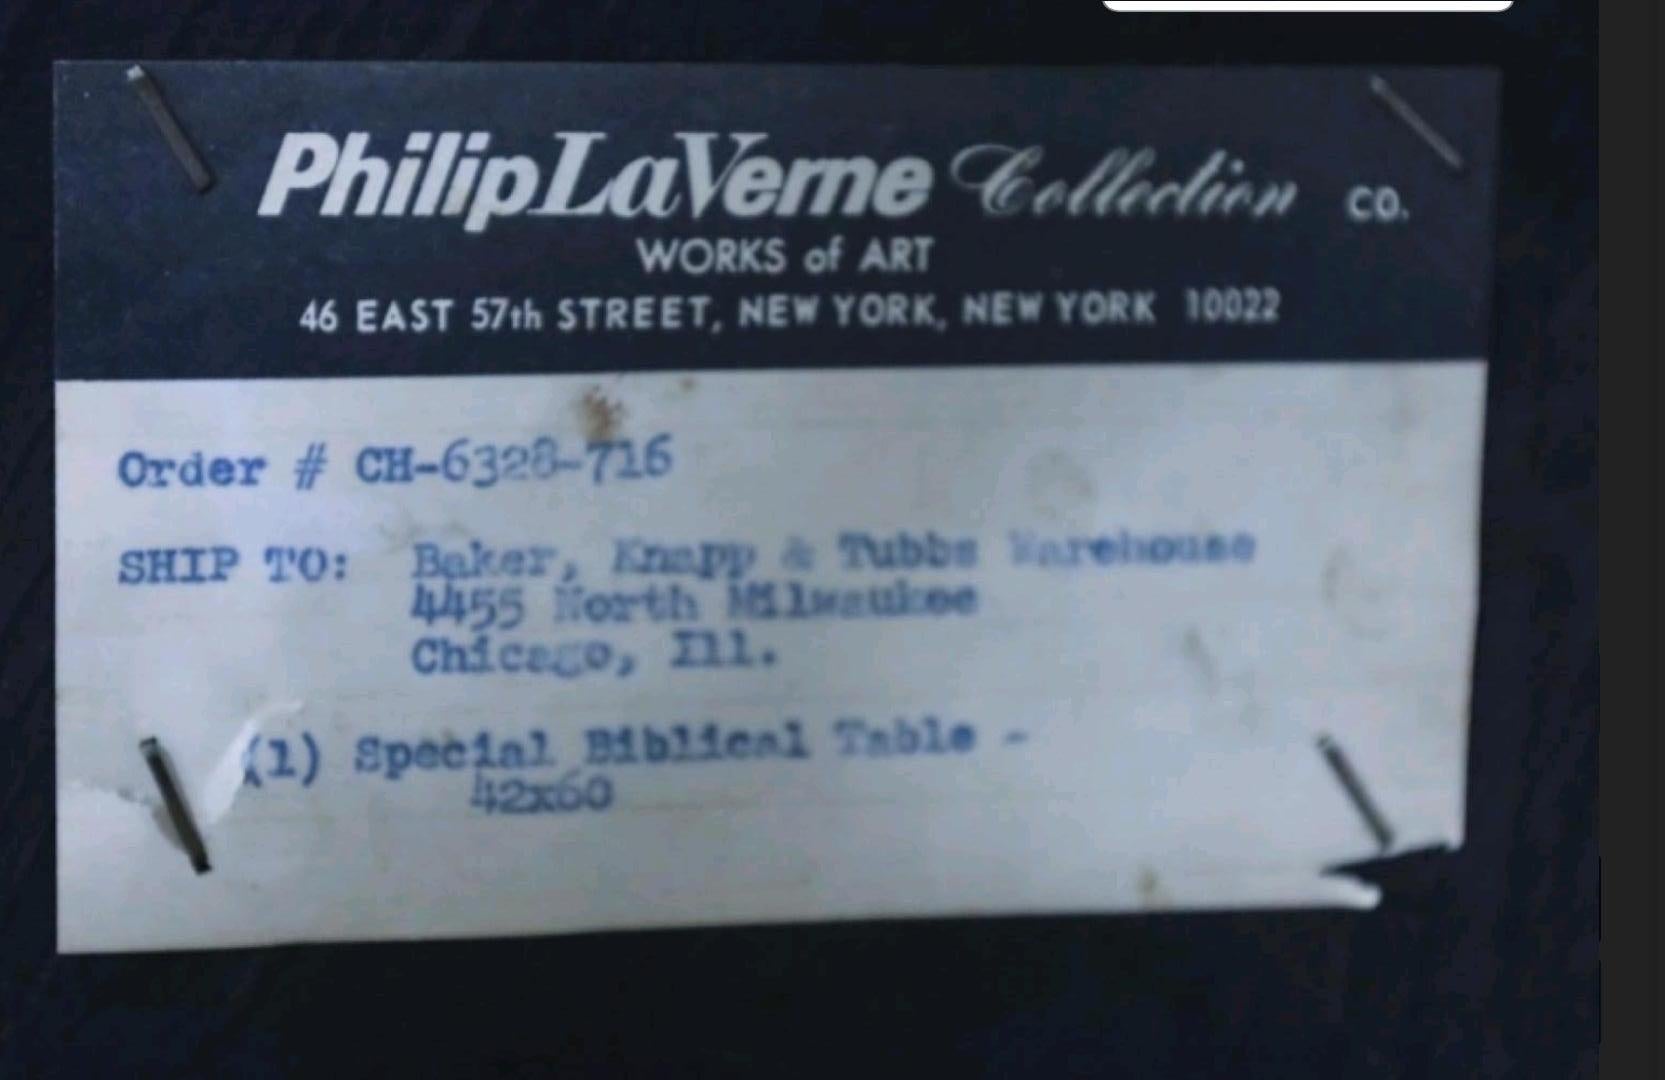 Philip LaVerne Collection CO.
WORKS of ART
46 EAST 57th STREET, NEW YORK, NEW YORK 10022
Order # CH-6328-716
SHIP TO: Baker, Knapp & Tubbs Warehouse
4455 North Milwaukee
Chicago, Ill.
(1) Special Biblical Table -
42x60